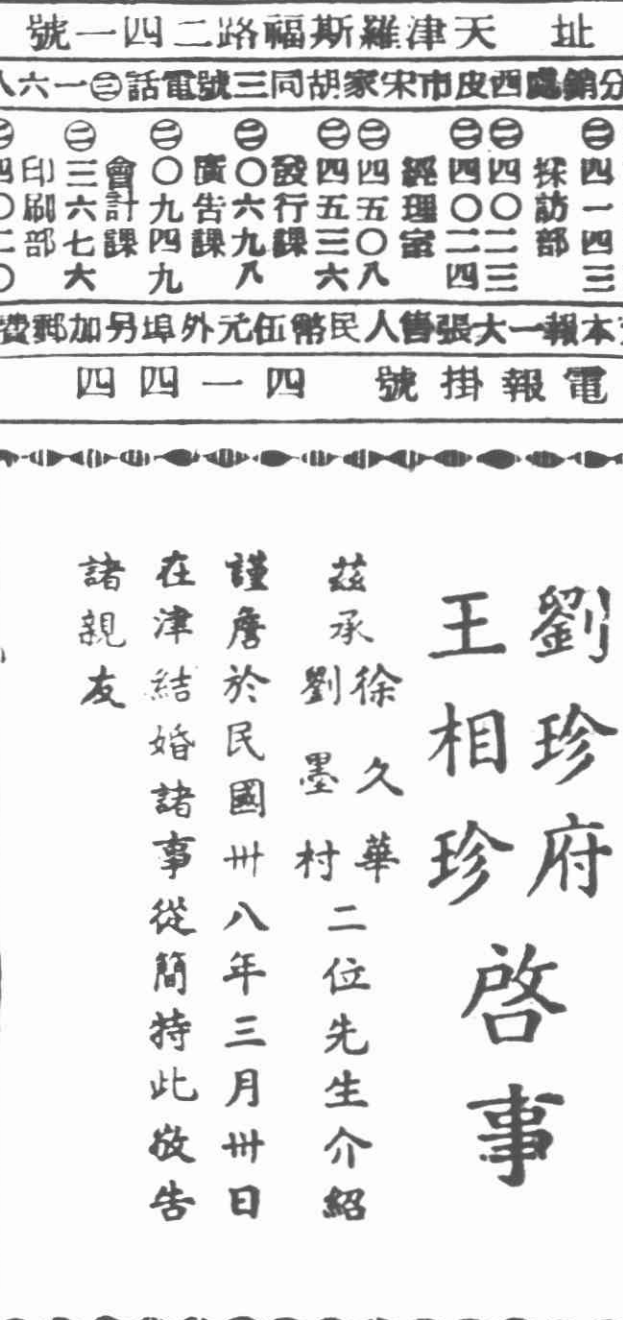 址 天津羅斯福路二四一號
分銷處西皮市宋家胡同三號電話㊂一六
㊁四一四三
採訪部
㊁四〇二三
㊁四〇二四
經理室
㊁四五〇八
㊁四五三六
發行課
㊁〇六九八
廣告課
㊁〇九四九
會計課
㊁三六七六
印刷部
㊁四〇二〇
本報一大張售人民幣伍元外埠另加郵費
電報掛號 四一四四
劉珍府
王相珍
啓事
茲承
徐久華
劉墨村
二位先生介紹
謹詹於民國卅八年三月卅日
在津結婚諸事從簡特此敬告
諸親友